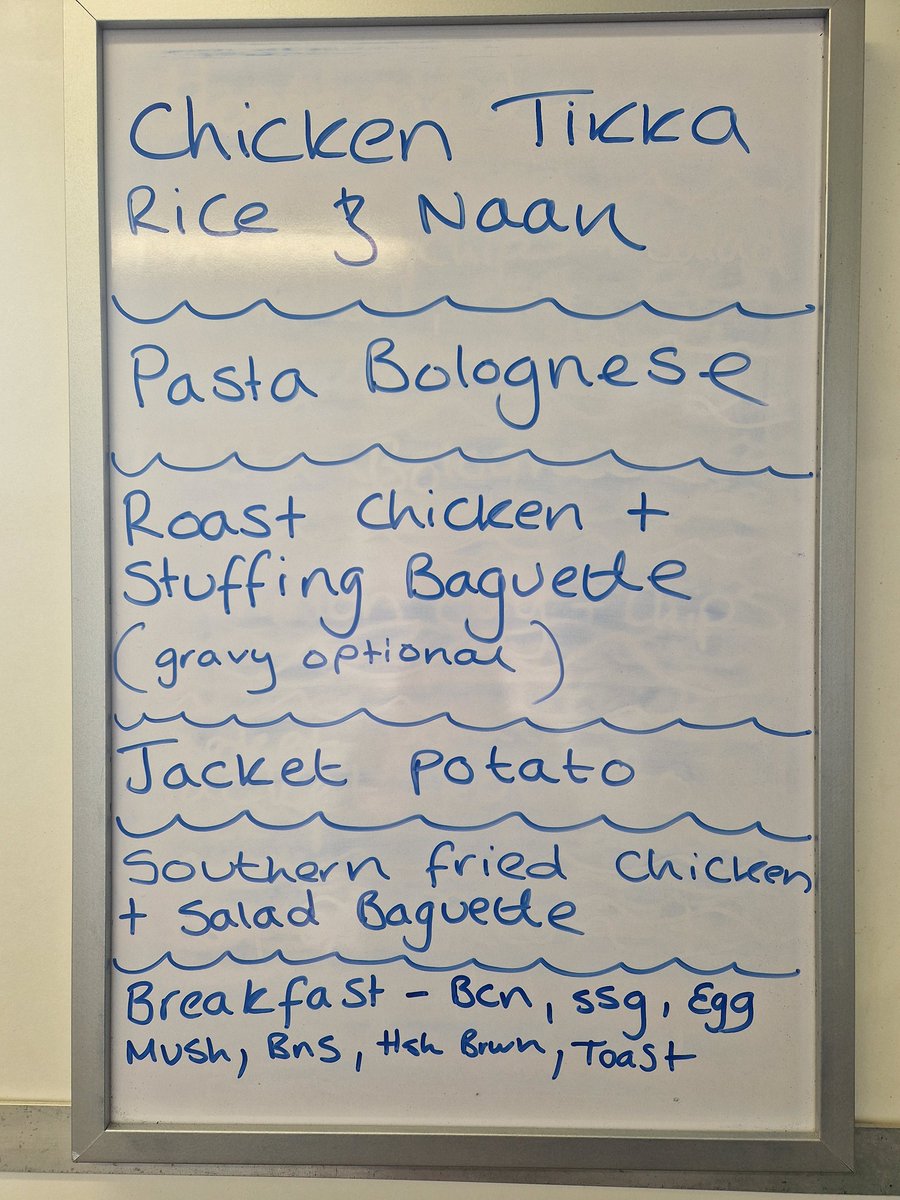 Chicken Tikka
Rice & Naan
Pasta Bolognese
Roast chicken +
Stuffing Baguette
(gravy optional)
Jacket potato
Southern fried chicken
+ salad Baguette
Breakfast - Bcn, ssg, Egg
Mush, Bns, Hsh Brwn, Toast